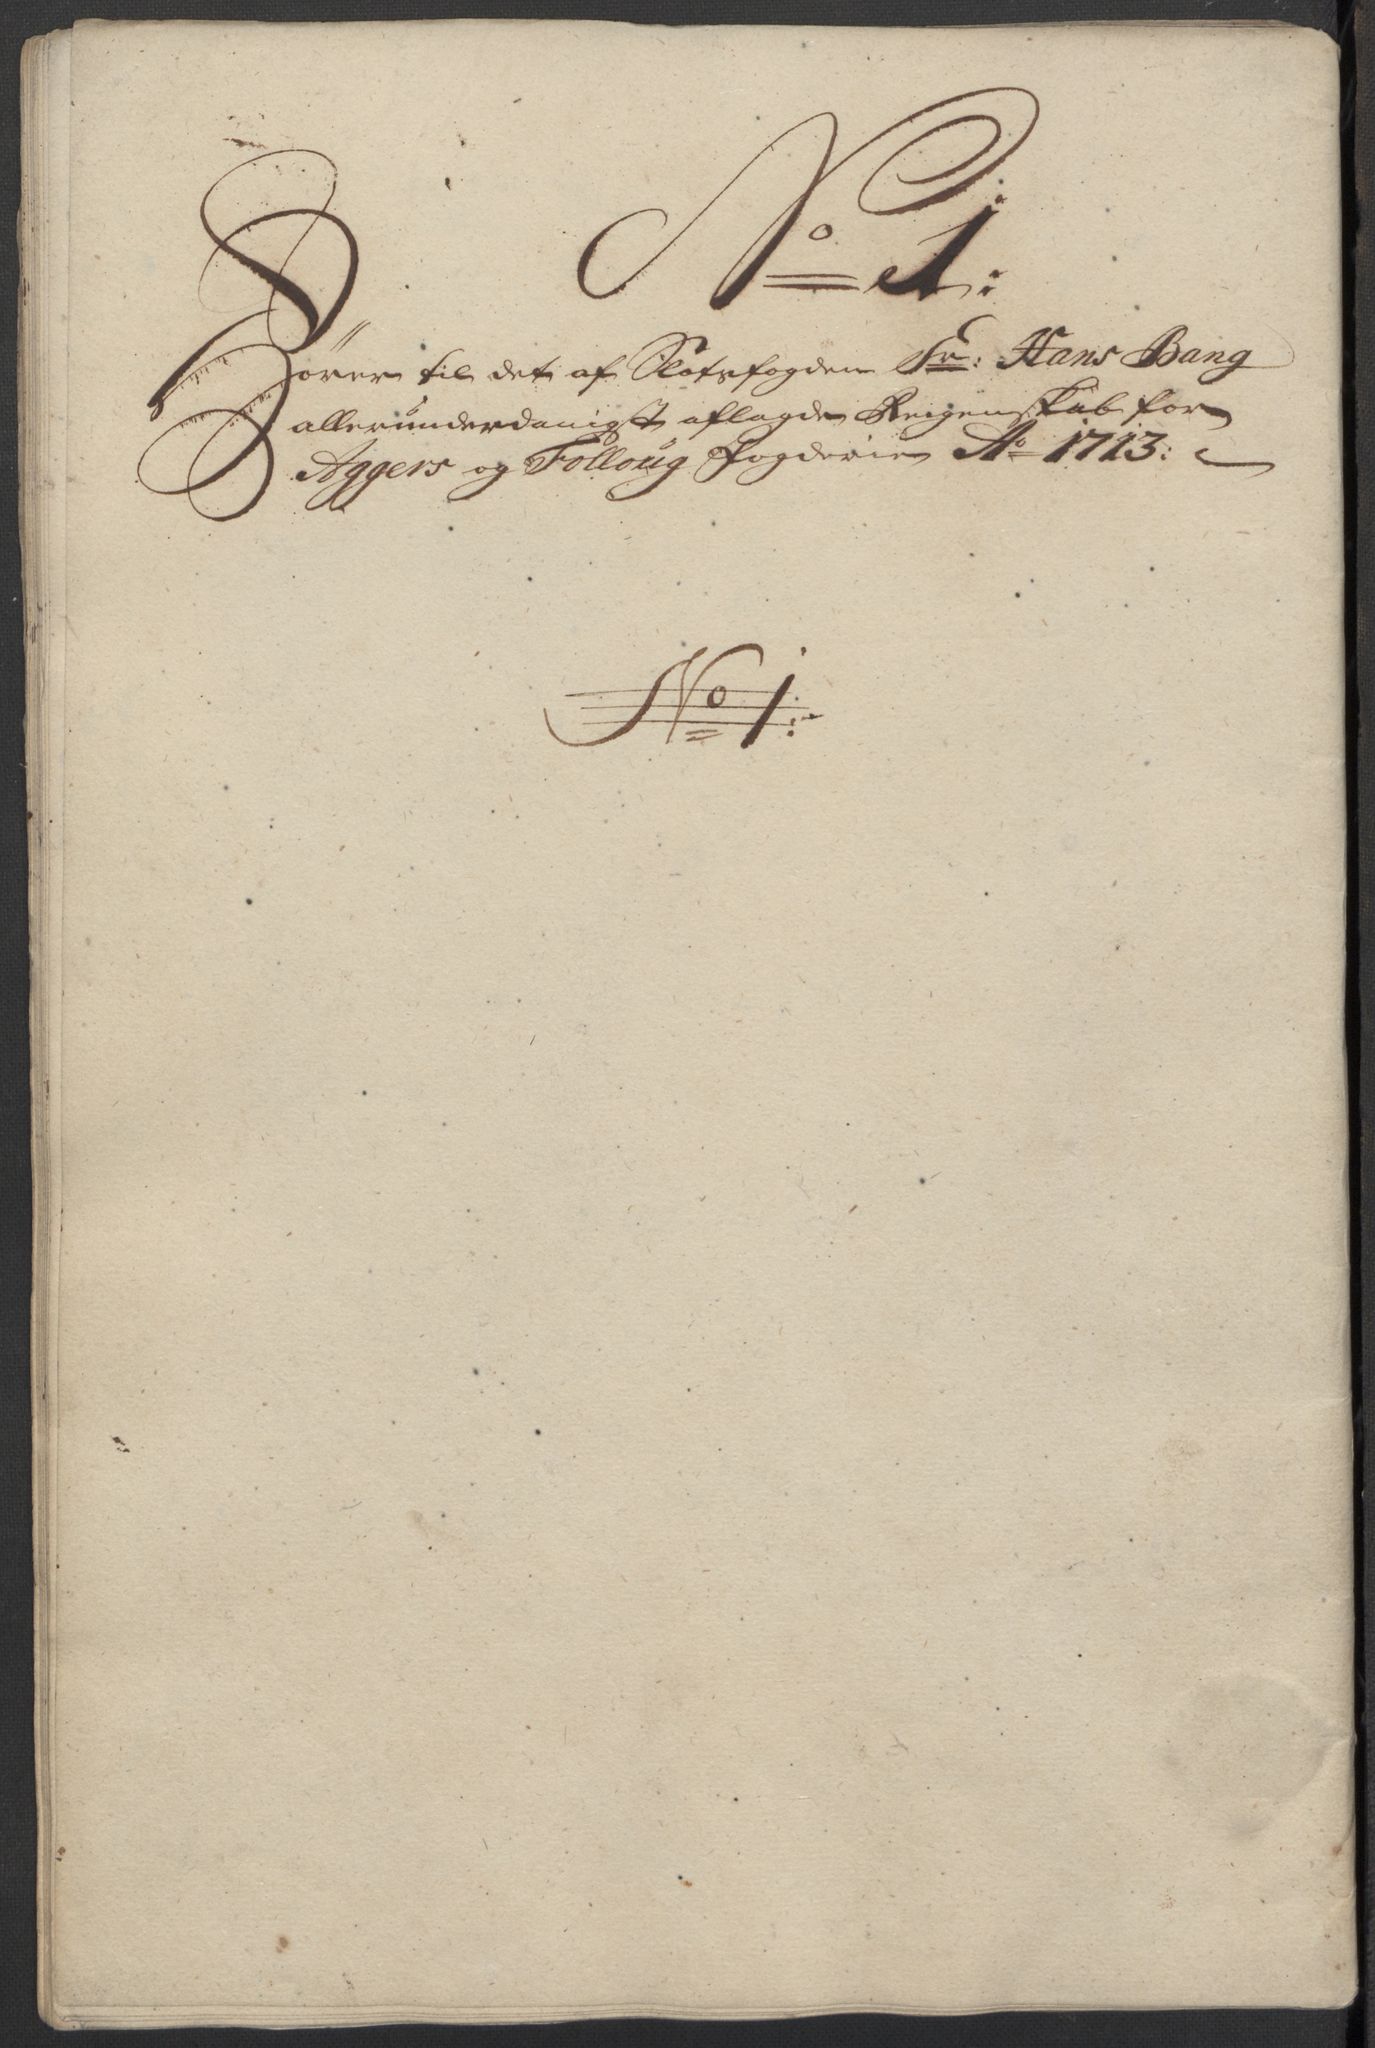 No 1:
Hører til det af Slotsfogden Sr: Hans Bang
allerunderdanigst aflagde Reigenskab for
Aggers og Folloug Fogderie Ao 1713:
No 1: